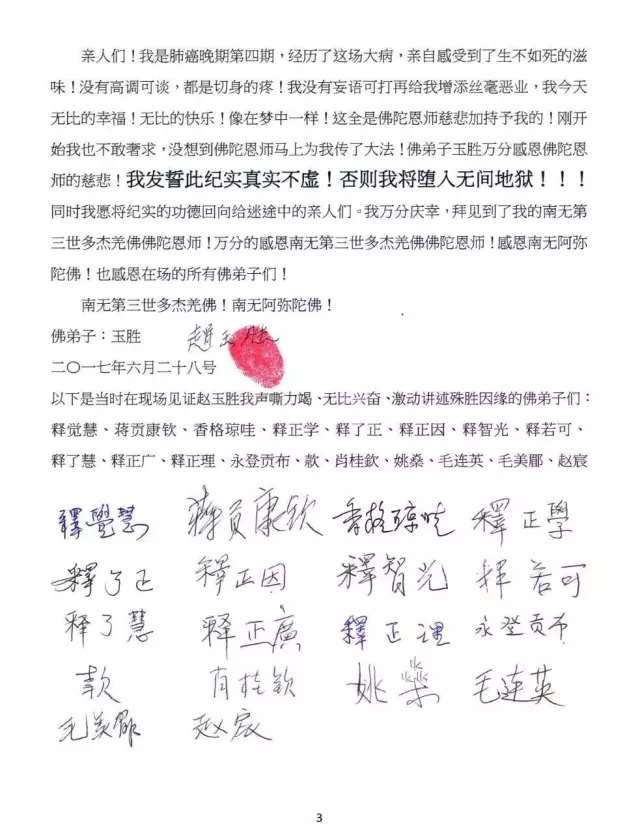 亲人们！我是肺癌晚期第四期，经历了这场大病，亲自感受到了生不如死的滋
味！没有高调可谈，都是切身的疼！我没有妄语可打再给我增添丝毫恶业，我今天
无比的幸福！无比的快乐！像在梦中一样！这全是佛陀恩师慈悲加持予我的！刚开
始我也不敢奢求，没想到佛陀恩师马上为我传了大法！佛弟子玉胜万分感恩佛陀恩
师的慈悲！我发誓此纪实真实不虚！否则我将堕入无间地狱！！！
同时我愿将纪实的功德回向给迷途中的亲人们。我万分庆幸，拜见到了我的南无第
三世多杰羌佛佛陀恩师！万分的感恩南无第三世多杰羌佛佛陀恩师！感恩南无阿弥
陀佛！也感恩在场的所有佛弟子们！
南无第三世多杰羌佛！南无阿弥陀佛！
佛弟子：玉胜 趙玉胜
二〇一七年六月二十八号
以下是当时在现场见证赵玉胜我声嘶力竭、无比兴奋、激动讲述殊胜因缘的佛弟子们：
释觉慧、蒋贡康钦、香格琼哇、释正学、释了正、释正因、释智光、释若可、
释了慧、释正广、释正理、永登贡布、款、肖桂欽、姚燊、毛连英、毛美郿、赵宸
釋覺慧 蒋貢康欽 香格琼哇 釋正學
釋了正 釋正因 釋智光 釋若可
释了慧 释正廣 釋正理 永登贡布
款 肖桂欽 姚燊 毛连英
毛美郿 赵宸
3